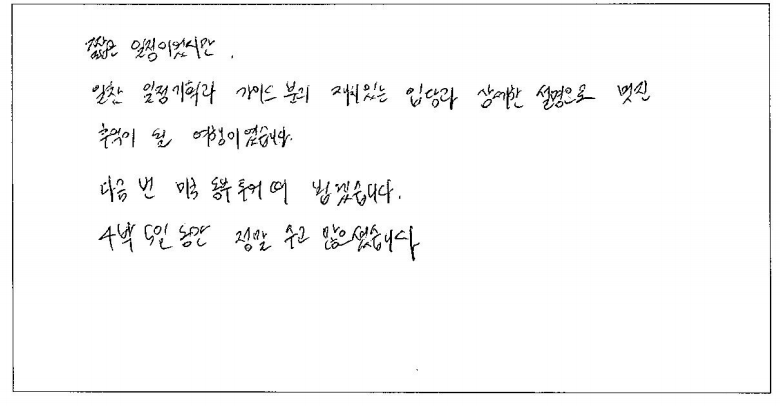 짧은 일정이었지만,
알찬 일정기획과 가이드 분의 재치있는 입담과 상세한 설명으로 멋진
추억이 될 여행이였습니다.
다음 번 미국 동부투어 때 뵙겠습니다.
4박 5일 동안 정말 수고 많으셨습니다